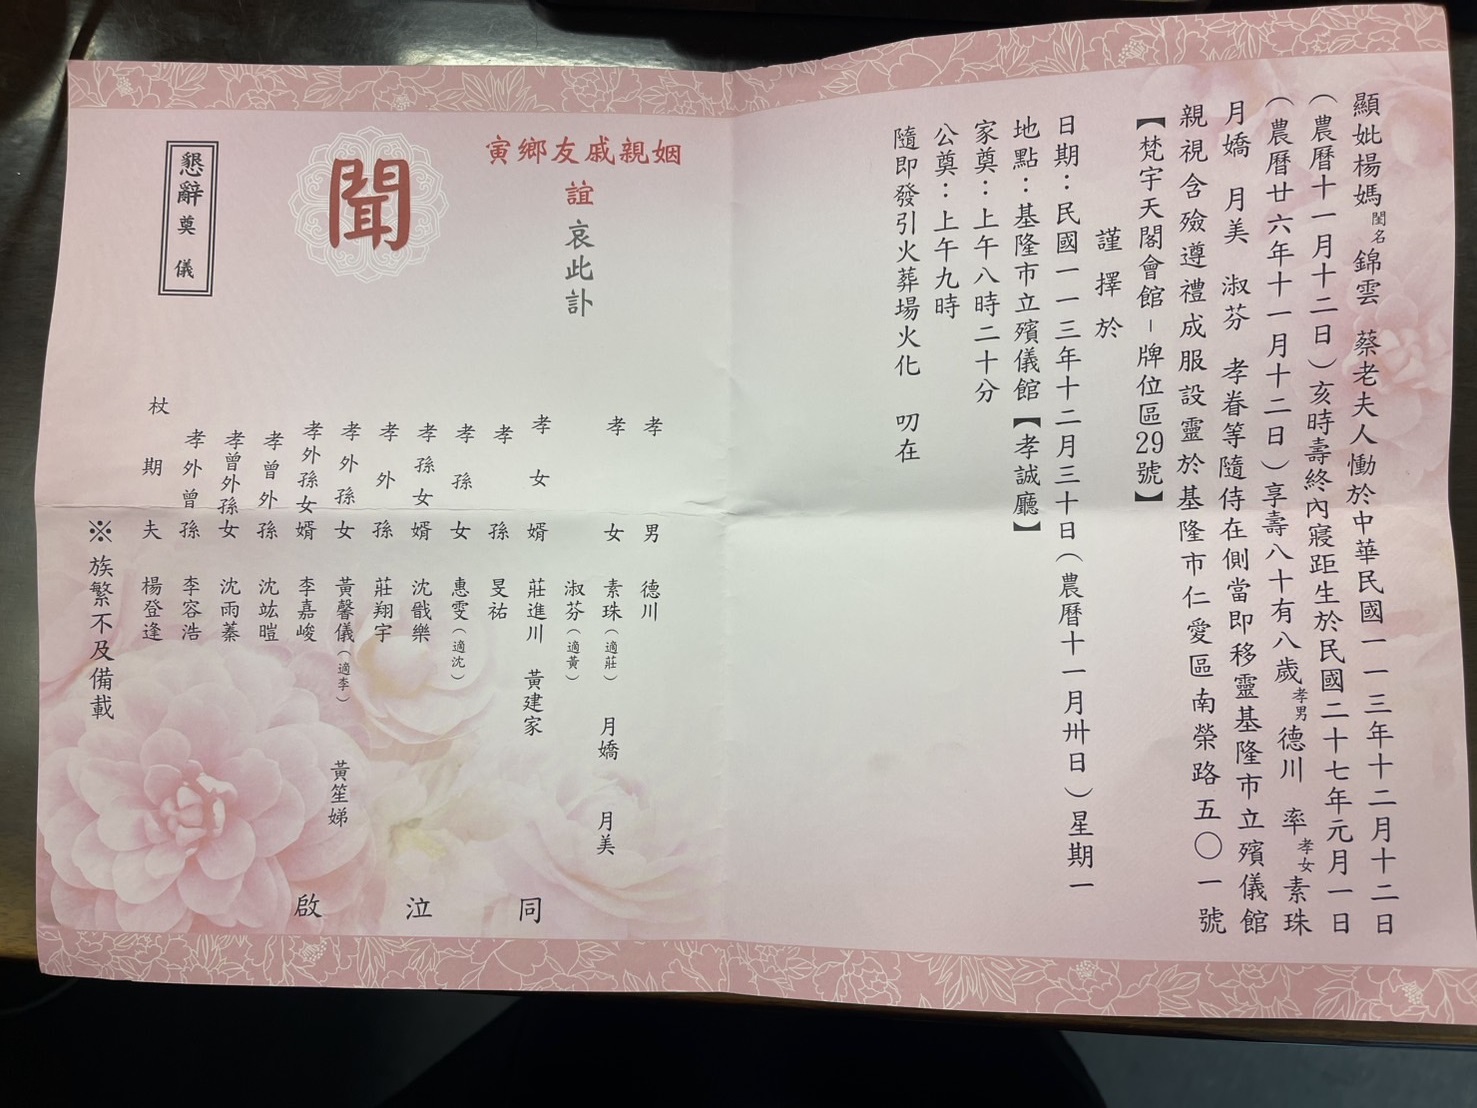 顯妣楊媽閨名錦雲 蔡老夫人慟於中華民國一一三年十二月十二日
（農曆十一月十二日）亥時壽終內寢距生於民國二十七年元月一日
（農曆廿六年十一月十二日）享壽八十有八歲孝男德川 率孝女素珠
月嬌 月美 淑芬 孝眷等隨侍在側當即移靈基隆市立殯儀館
親視含殮遵禮成服設靈於基隆市仁愛區南榮路五〇一號
【梵宇天閣會館－牌位區29號】
謹擇於
日期：民國一一三年十二月三十日（農曆十一月卅日）星期一
地點：基隆市立殯儀館【孝誠廳】
家奠：上午八時二十分
公奠：上午九時
隨即發引火葬場火化 叨在
寅鄉友戚親姻
誼哀此訃
聞
懇辭奠儀
孝男 德川
孝女 素珠（適莊） 月嬌 月美
淑芬（適黃）
孝女婿 莊進川 黃建家
孝孫 旻祐
孝孫女 惠雯（適沈）
孝孫女婿 沈戩樂
孝外孫 莊翔宇
孝外孫女 黃馨儀（適李） 黃笙娣
孝外孫女婿 李嘉峻
孝曾外孫 沈竑暟
孝曾外孫女 沈雨蓁
孝外曾孫 李容浩
杖期夫 楊登逢
※族繁不及備載
同泣啟